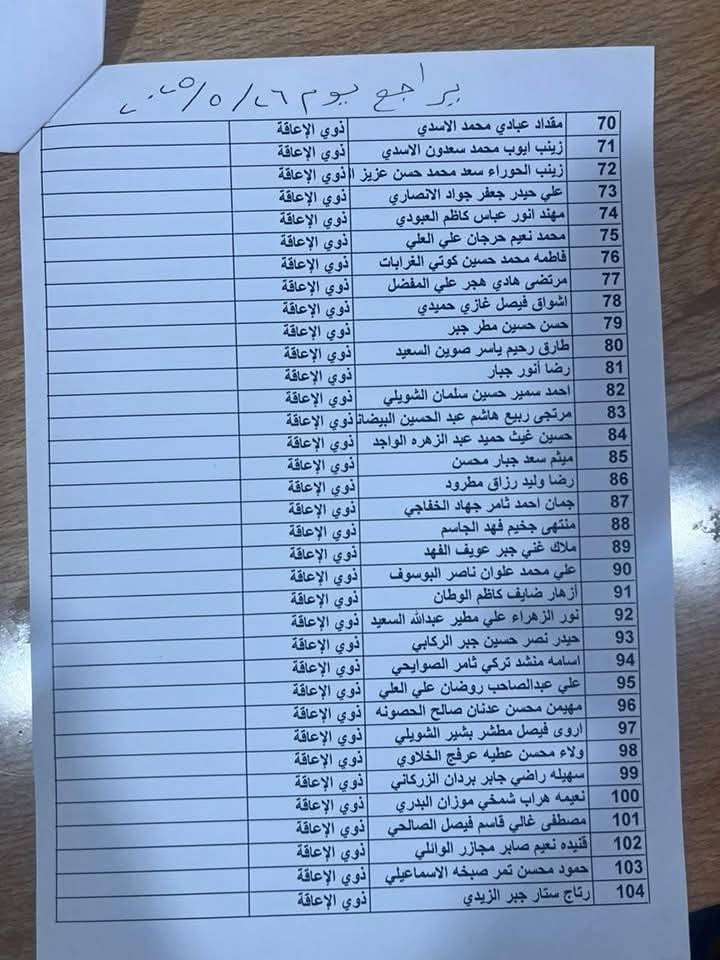 يراجع يوم ٢٦/٥/٢٠٢٥
70 مقداد عبادي محمد الاسدي ذوي الإعاقة
71 زينب ايوب محمد سعدون الاسدي ذوي الإعاقة
72 زينب الحوراء سعد محمد حسن عزيز ذوي الإعاقة
73 علي حيدر جعفر جواد الانصاري ذوي الإعاقة
74 مهند انور عباس كاظم العبودي ذوي الإعاقة
75 محمد نعيم حرجان علي العلي ذوي الإعاقة
76 فاطمه محمد حسين كوتي الغرابات ذوي الإعاقة
77 مرتضى هادي هجر علي المفضل ذوي الإعاقة
78 اشواق فيصل غازي حميدي ذوي الإعاقة
79 حسن حسين مطر جبر ذوي الإعاقة
80 طارق رحيم ياسر صوين السعيد ذوي الإعاقة
81 رضا أنور جبار ذوي الإعاقة
82 احمد سمير حسين سلمان الشويلي ذوي الإعاقة
83 مرتجى ربيع هاشم عبد الحسين البيضان ذوي الإعاقة
84 حسين غيث حميد عبد الزهره الواجد ذوي الإعاقة
85 ميثم سعد جبار محسن ذوي الإعاقة
86 رضا وليد رزاق مطرود ذوي الإعاقة
87 جمان احمد ثامر جهاد الخفاجي ذوي الإعاقة
88 منتهى جخيم فهد الجاسم ذوي الإعاقة
89 ملاك غني جبر عويف الفهد ذوي الإعاقة
90 علي محمد علوان ناصر البوسوف ذوي الإعاقة
91 أزهار ضايف كاظم الوطان ذوي الإعاقة
92 نور الزهراء علي مطير عبدالله السعيد ذوي الإعاقة
93 حيدر نصر حسين جبر الركابي ذوي الإعاقة
94 اسامه منشد تركي ثامر الصوايحي ذوي الإعاقة
95 علي عبدالصاحب روضان علي العلي ذوي الإعاقة
96 مهيمن محسن عدنان صالح الحصونه ذوي الإعاقة
97 اروى فيصل مطشر بشير الشويلي ذوي الإعاقة
98 ولاء محسن عطيه عرفج الخلاوي ذوي الإعاقة
99 سهيله راضي جابر بردان الزركاني ذوي الإعاقة
100 نعيمه هراب شمخي موزان البدري ذوي الإعاقة
101 مصطفى غالي قاسم فيصل الصالحي ذوي الإعاقة
102 قنيده نعيم صابر مجازر الوائلي ذوي الإعاقة
103 حمود محسن تمر صبخه الاسماعيلي ذوي الإعاقة
104 رتاج ستار جبر الزيدي ذوي الإعاقة